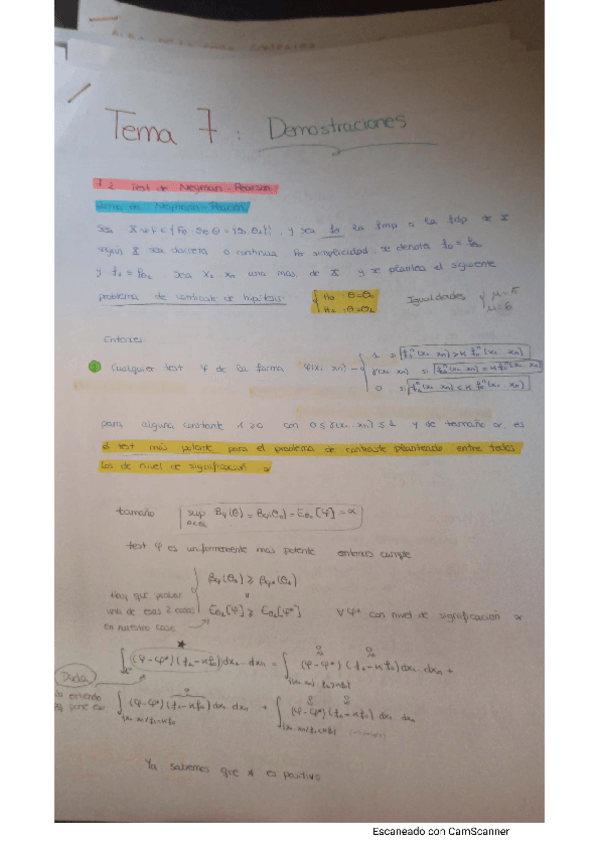 Tema 7: Demostraciones
7.2 Test de Neyman-Pearson
Lema de Neyman-Pearson
Sea X ∼ F ∈ {Fθ : θ ∈ Θ = {θ0, θ1}}, y sea fθ la fmp o la fdp de X
según X sea discreta o continua. Por simplicidad, se denota f0 = fθ0
y f1 = fθ1. Sea X1..Xn una mas. de X y se plantea el siguiente
problema de contraste de hipótesis: { H0: θ=θ0 H1: θ=θ1 Igualdades { μ=5 μ=6
Entonces:
① Cualquier test φ de la forma φ(x1..xn) = { 1 si f1ⁿ(x1..xn) > k f0ⁿ(x1..xn)
γ(x1..xn) si f1ⁿ(x1..xn) = k f0ⁿ(x1..xn)
0 si f1ⁿ(x1..xn) < k f0ⁿ(x1..xn)
para alguna constante k≥0 con 0≤γ(x1..xn)≤1 y de tamaño α, es
el test más potente para el problema de contraste planteado entre todos
los de nivel de significación α
tamaño sup βφ(θ) = βφ(θ0) = Eθ0[φ] = α
θ∈Θ0
test φ es uniformemente más potente entonces cumple
Hay que probar
una de esas 2 cosas
en nuestro caso
{ βφ(θ1) ≥ βφ*(θ1)
Eθ1[φ] ≥ Eθ1[φ*] ∀φ* con nivel de significación α
★
∫ (φ-φ*)(f1-kf0)dx1..dxn = ∫ (φ-φ*)(f1-kf0)dx1..dxn +
Duda
No entiendo
pq pone eso
∫ (φ-φ*)(f1-kf0)dx1 dxn + ∫ (φ-φ*)(f1-kf0) dx1 dxn
Ya sabemos que * es positivo
Escaneado con CamScanner